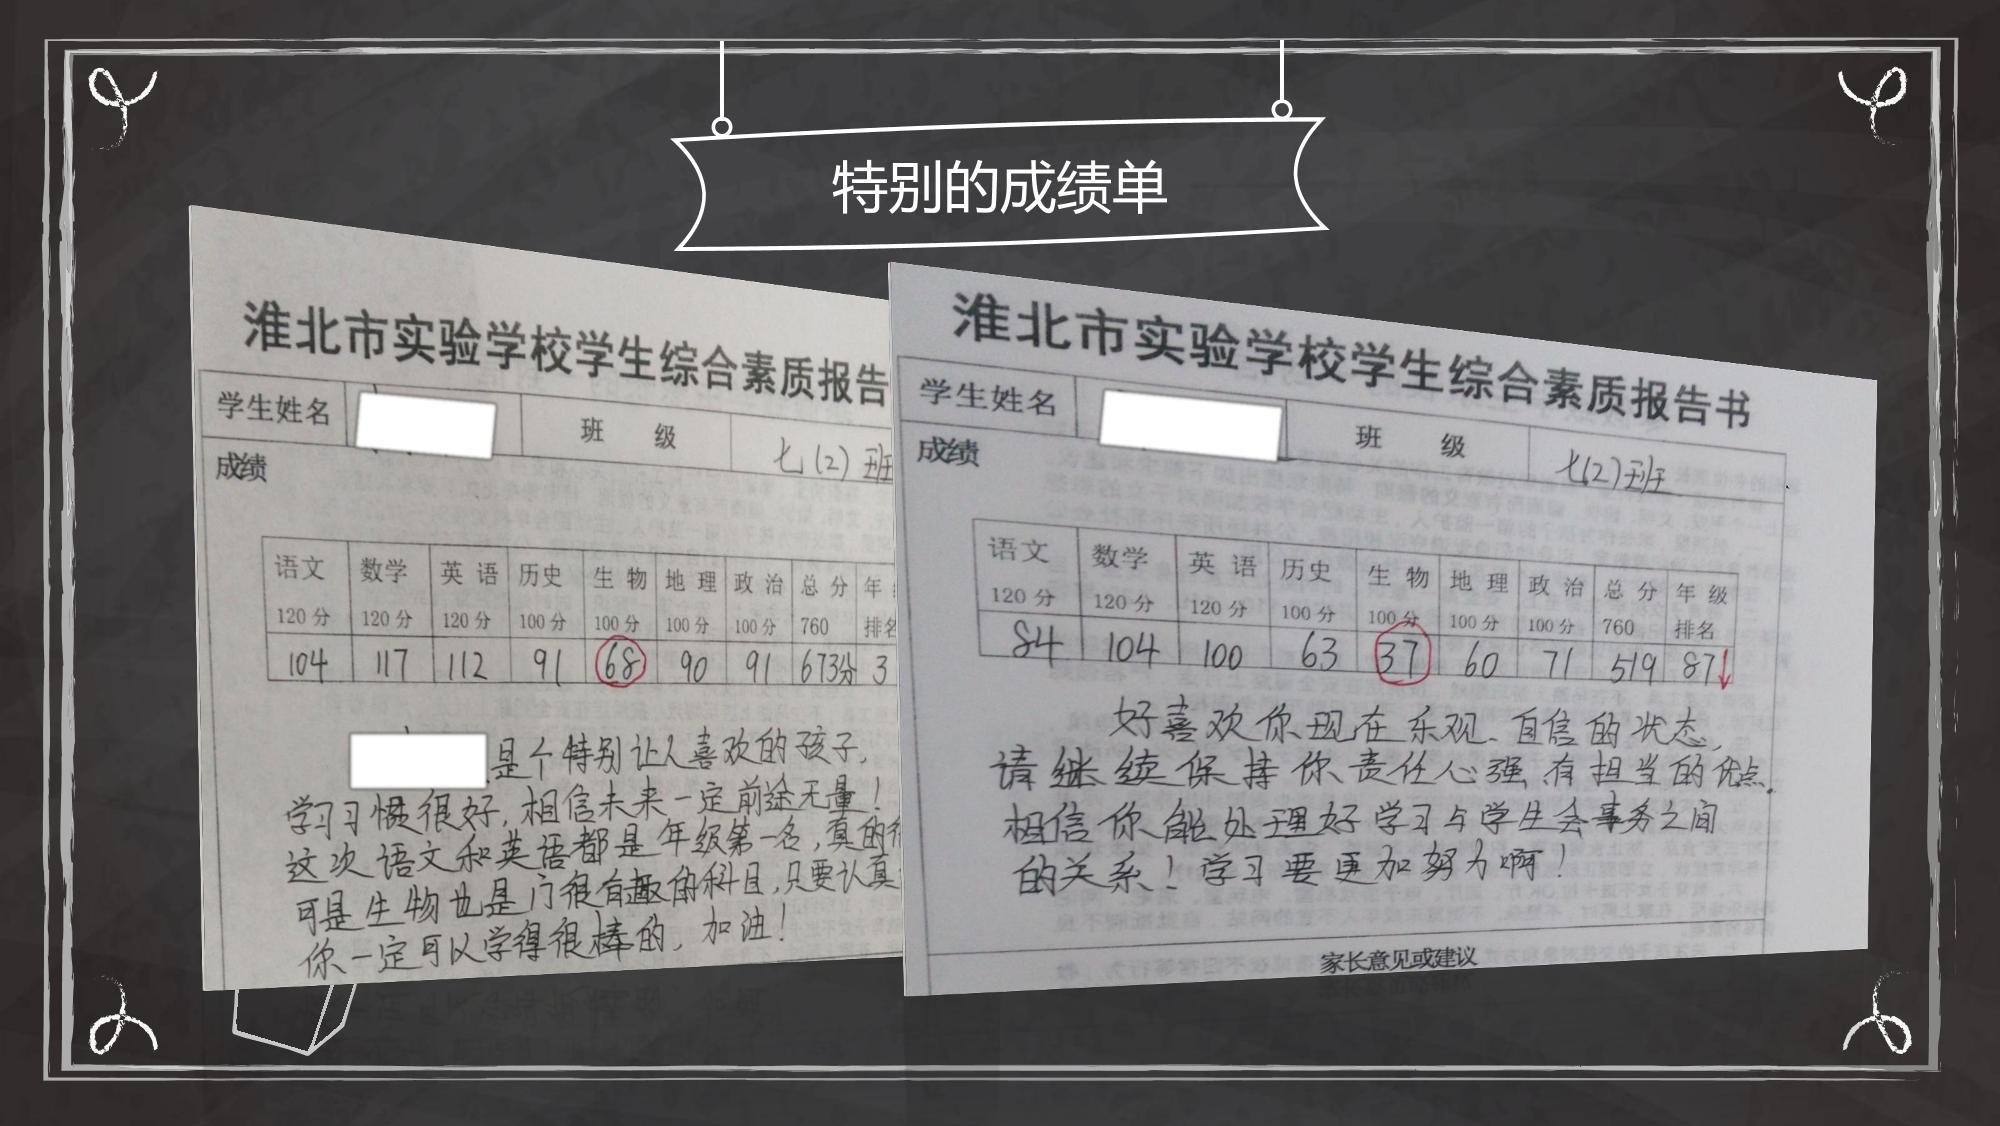 特别的成绩单
淮北市实验学校学生综合素质报告
学生姓名 班 级 七(2)班
成绩
语文 数学 英语 历史 生物 地理 政治 总分 年
120分 120分 120分 100分 100分 100分 100分 760 排名
104 117 112 91 68 90 91 673分 3
是个特别让人喜欢的孩子,
学习习惯很好,相信未来一定前途无量!
这次语文和英语都是年级第一名,真的很
可是生物也是门很有趣的科目,只要认真
你一定可以学得很棒的,加油!
淮北市实验学校学生综合素质报告书
学生姓名 班 级 七(2)班
成绩
语文 数学 英语 历史 生物 地理 政治 总分 年级
120分 120分 120分 100分 100分 100分 100分 760 排名
84 104 100 63 37 60 71 519 87↓
好喜欢你现在乐观、自信的状态,
请继续保持你责任心强有担当的优点。
相信你能处理好学习与学生会事务之间
的关系!学习要更加努力啊!
家长意见或建议